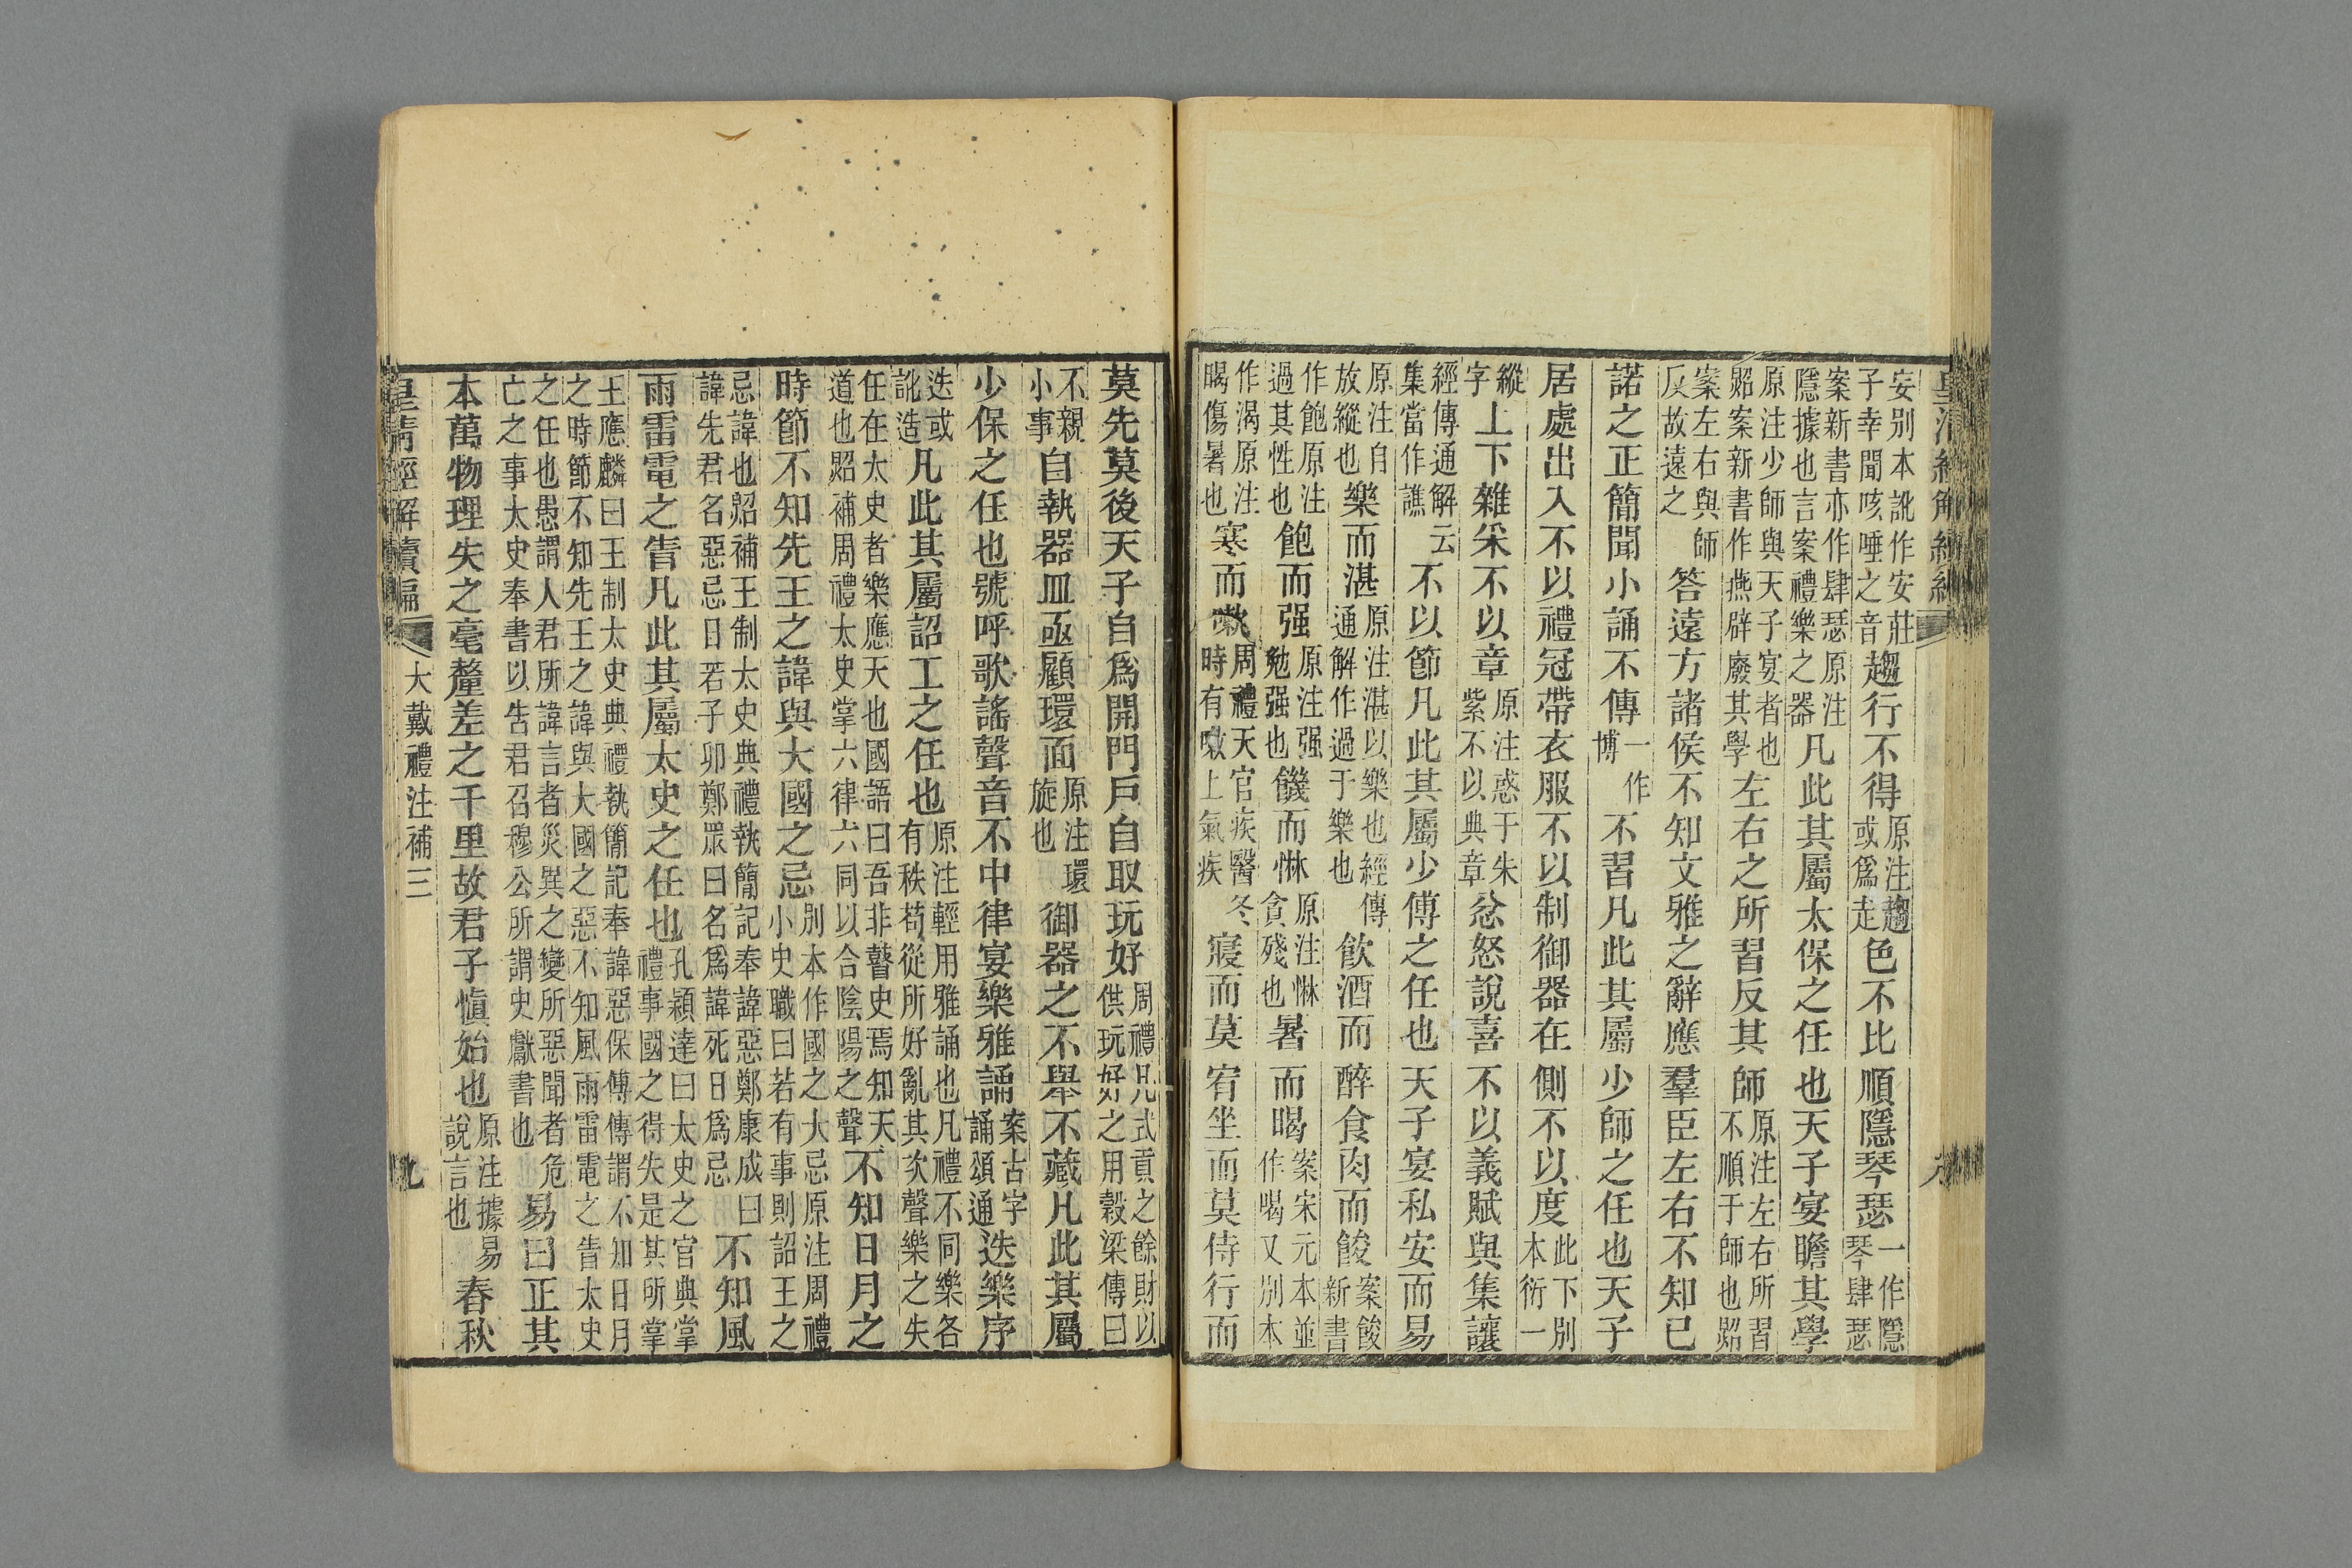 安别本訛作安莊子幸聞咳唾之音趨行不得原注趨或爲走色不比順隱琴瑟一作隱琴肆瑟
案新書亦作肆瑟原注隱據也言案禮樂之器凡此其屬太保之任也天子宴瞻其學
原注少師與天子宴者也炤案新書作燕辟廢其學左右之所習反其師原注左右所習不順于師也炤
案左右與師反故遠之答遠方諸侯不知文雅之辭應羣臣左右不知已
諾之正簡聞小誦不傳一作博不習凡此其屬少師之任也天子
居處出入不以禮冠帶衣服不以制御器在側不以度此下别本衍一
縱字上下雜采不以章原注惑于朱紫不以典章忿怒說喜不以義賦與集讓
經傳通解云集當作譙不以節凡此其屬少傅之任也天子宴私安而易
原注自放縱也樂而湛原注湛以樂也經傳通解作過于樂也飲酒而醉食肉而餕案餕新書
作飽原注過其性也飽而强原注强勉强也饑而惏原注惏貪殘也暑而暍案宋元本並作喝又别本
作渦原注暍傷暑也寒而嗽周禮天官疾醫冬時有嗽上氣疾寢而莫宥坐而莫侍行而
莫先莫後天子自爲開門戶自取玩好周禮凡式貢之餘財以供玩好之用穀梁傳曰
不親小事自執器皿亟顧環面原注環旋也御器之不舉不藏凡此其屬
少保之任也號呼歌謠聲音不中律宴樂雅誦案古字誦頌通迭樂序
迭或訛造凡此其屬詔工之任也原注輕用雅誦也凡禮不同樂各有秩苟從所好亂其次聲樂之失
任在太史者樂應天也國語曰吾非瞽史焉知天道也炤補周禮太史掌六律六同以合陰陽之聲不知日月之
時節不知先王之諱與大國之忌别本作國之大忌原注周禮小史職曰若有事則詔王之
忌諱也炤補王制太史典禮執簡記奉諱惡鄭康成曰諱先君名惡忌日若子卯鄭眾曰名爲諱死日爲忌不知風
雨雷電之眚凡此其屬太史之任也孔穎達曰太史之官典掌禮事國之得失是其所掌
王應麟曰王制太史典禮執簡記奉諱惡保傅傳謂不知日月之時節不知先王之諱與大國之惡不知風雨雷電之眚太史
之任也愚謂人君所諱言者災異之變所惡聞者危亡之事太史奉書以告君召穆公所謂史獻書也易曰正其
本萬物理失之毫釐差之千里故君子慎始也原注據易說言也春秋
皇清經解續編 大戴禮注補三 九